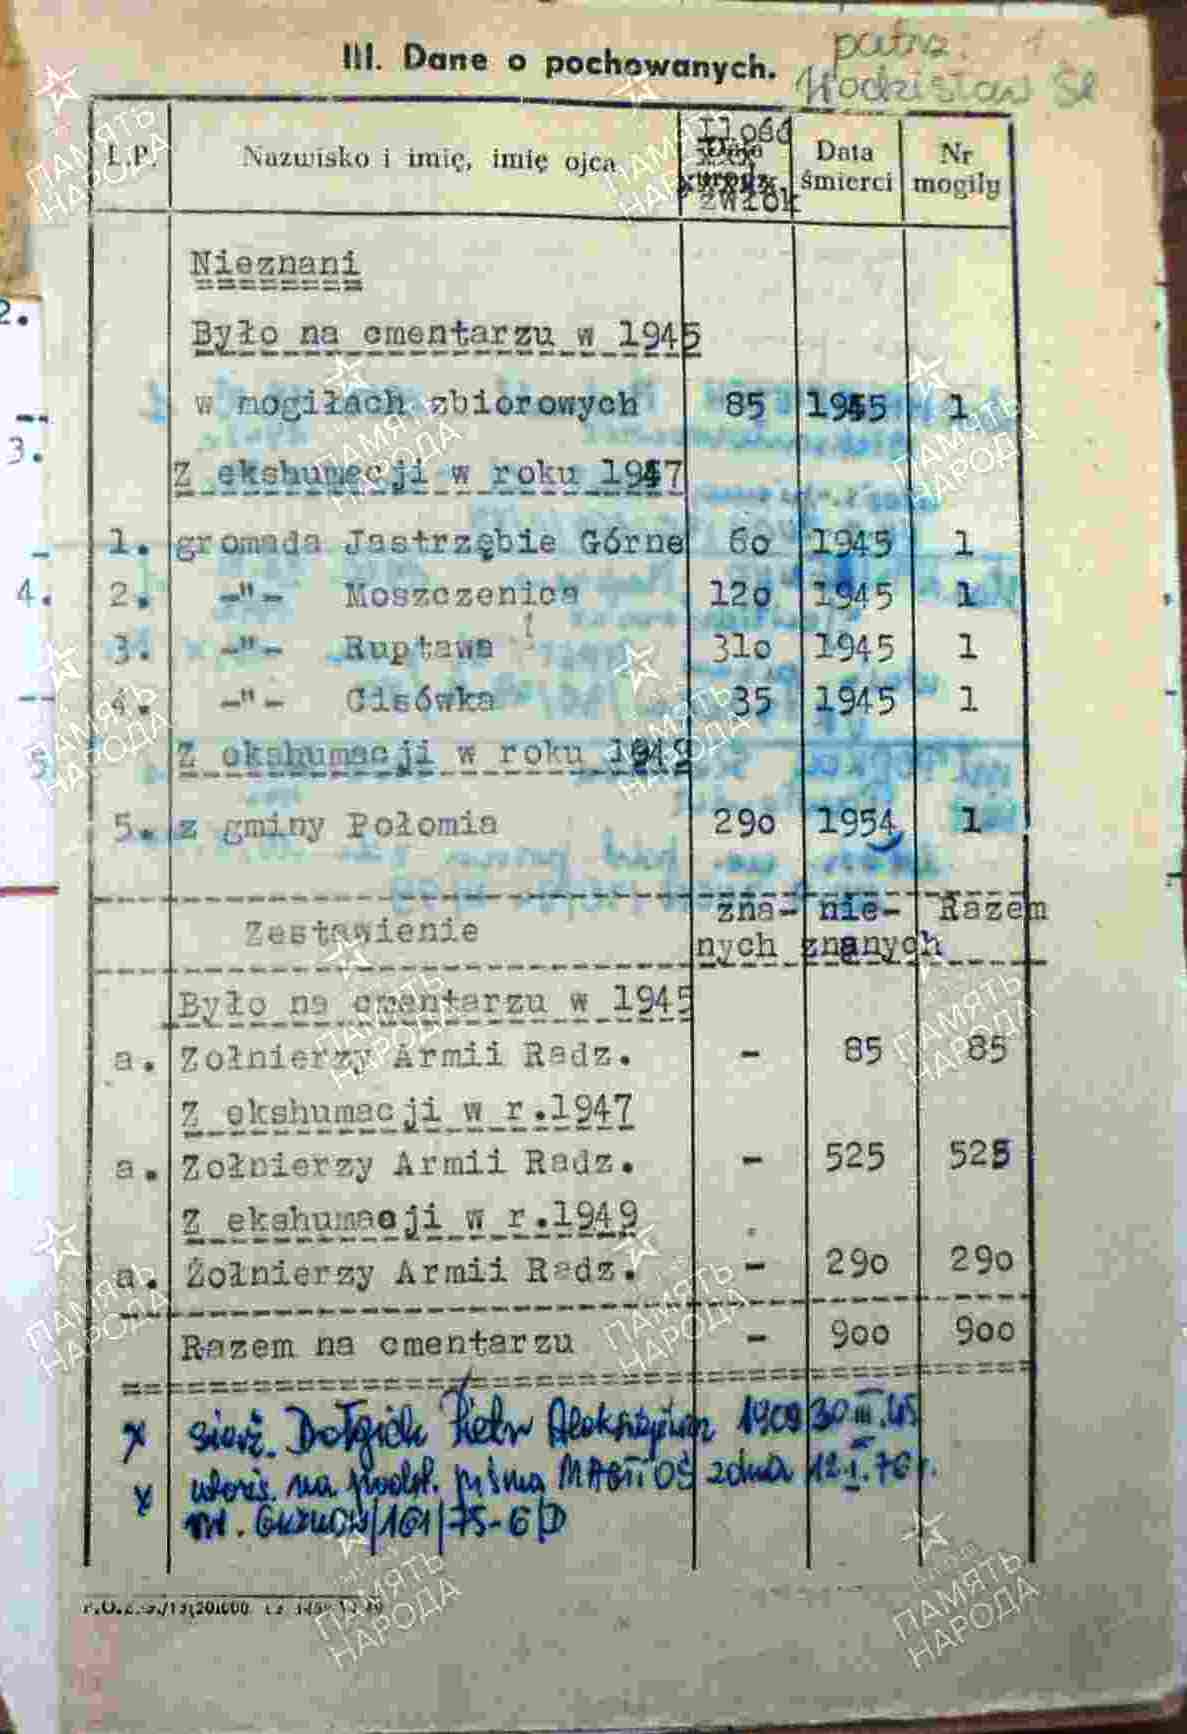 patrz: 1
III. Dane o pochowanych.
Wodzisław Śl
L.P. Nazwisko i imię, imię ojca Ilość zwłok Data śmierci Nr mogiły
Nieznani
Było na cmentarzu w 1945
w mogiłach zbiorowych 85 1945 1
Z ekshumacji w roku 1947
1. gromada Jastrzębie Górne 60 1945 1
2. -"- Moszczenica 120 1945 1
3. -"- Ruptawa 310 1945 1
4. -"- Cisówka 35 1945 1
Z ekshumacji w roku 1949
5. z gminy Połomia 290 1954 1
Zestawienie zna- nie- Razem
nych znanych
Było na cmentarzu w 1945
a. Zołnierzy Armii Radz. - 85 85
Z ekshumacji w r.1947
a. Zołnierzy Armii Radz. - 525 525
Z ekshumacji w r.1949
a. Żołnierzy Armii Radz. - 290 290
Razem na cmentarzu - 900 900
x sierż. Dołgich Piotr 1909 30 III.45
x na podst. pisma MAGTiOŚ z dnia 12.I.76 r.
/161/75-6/D
2.
3.
4.
5
ПАМЯТЬ
НАРОДА